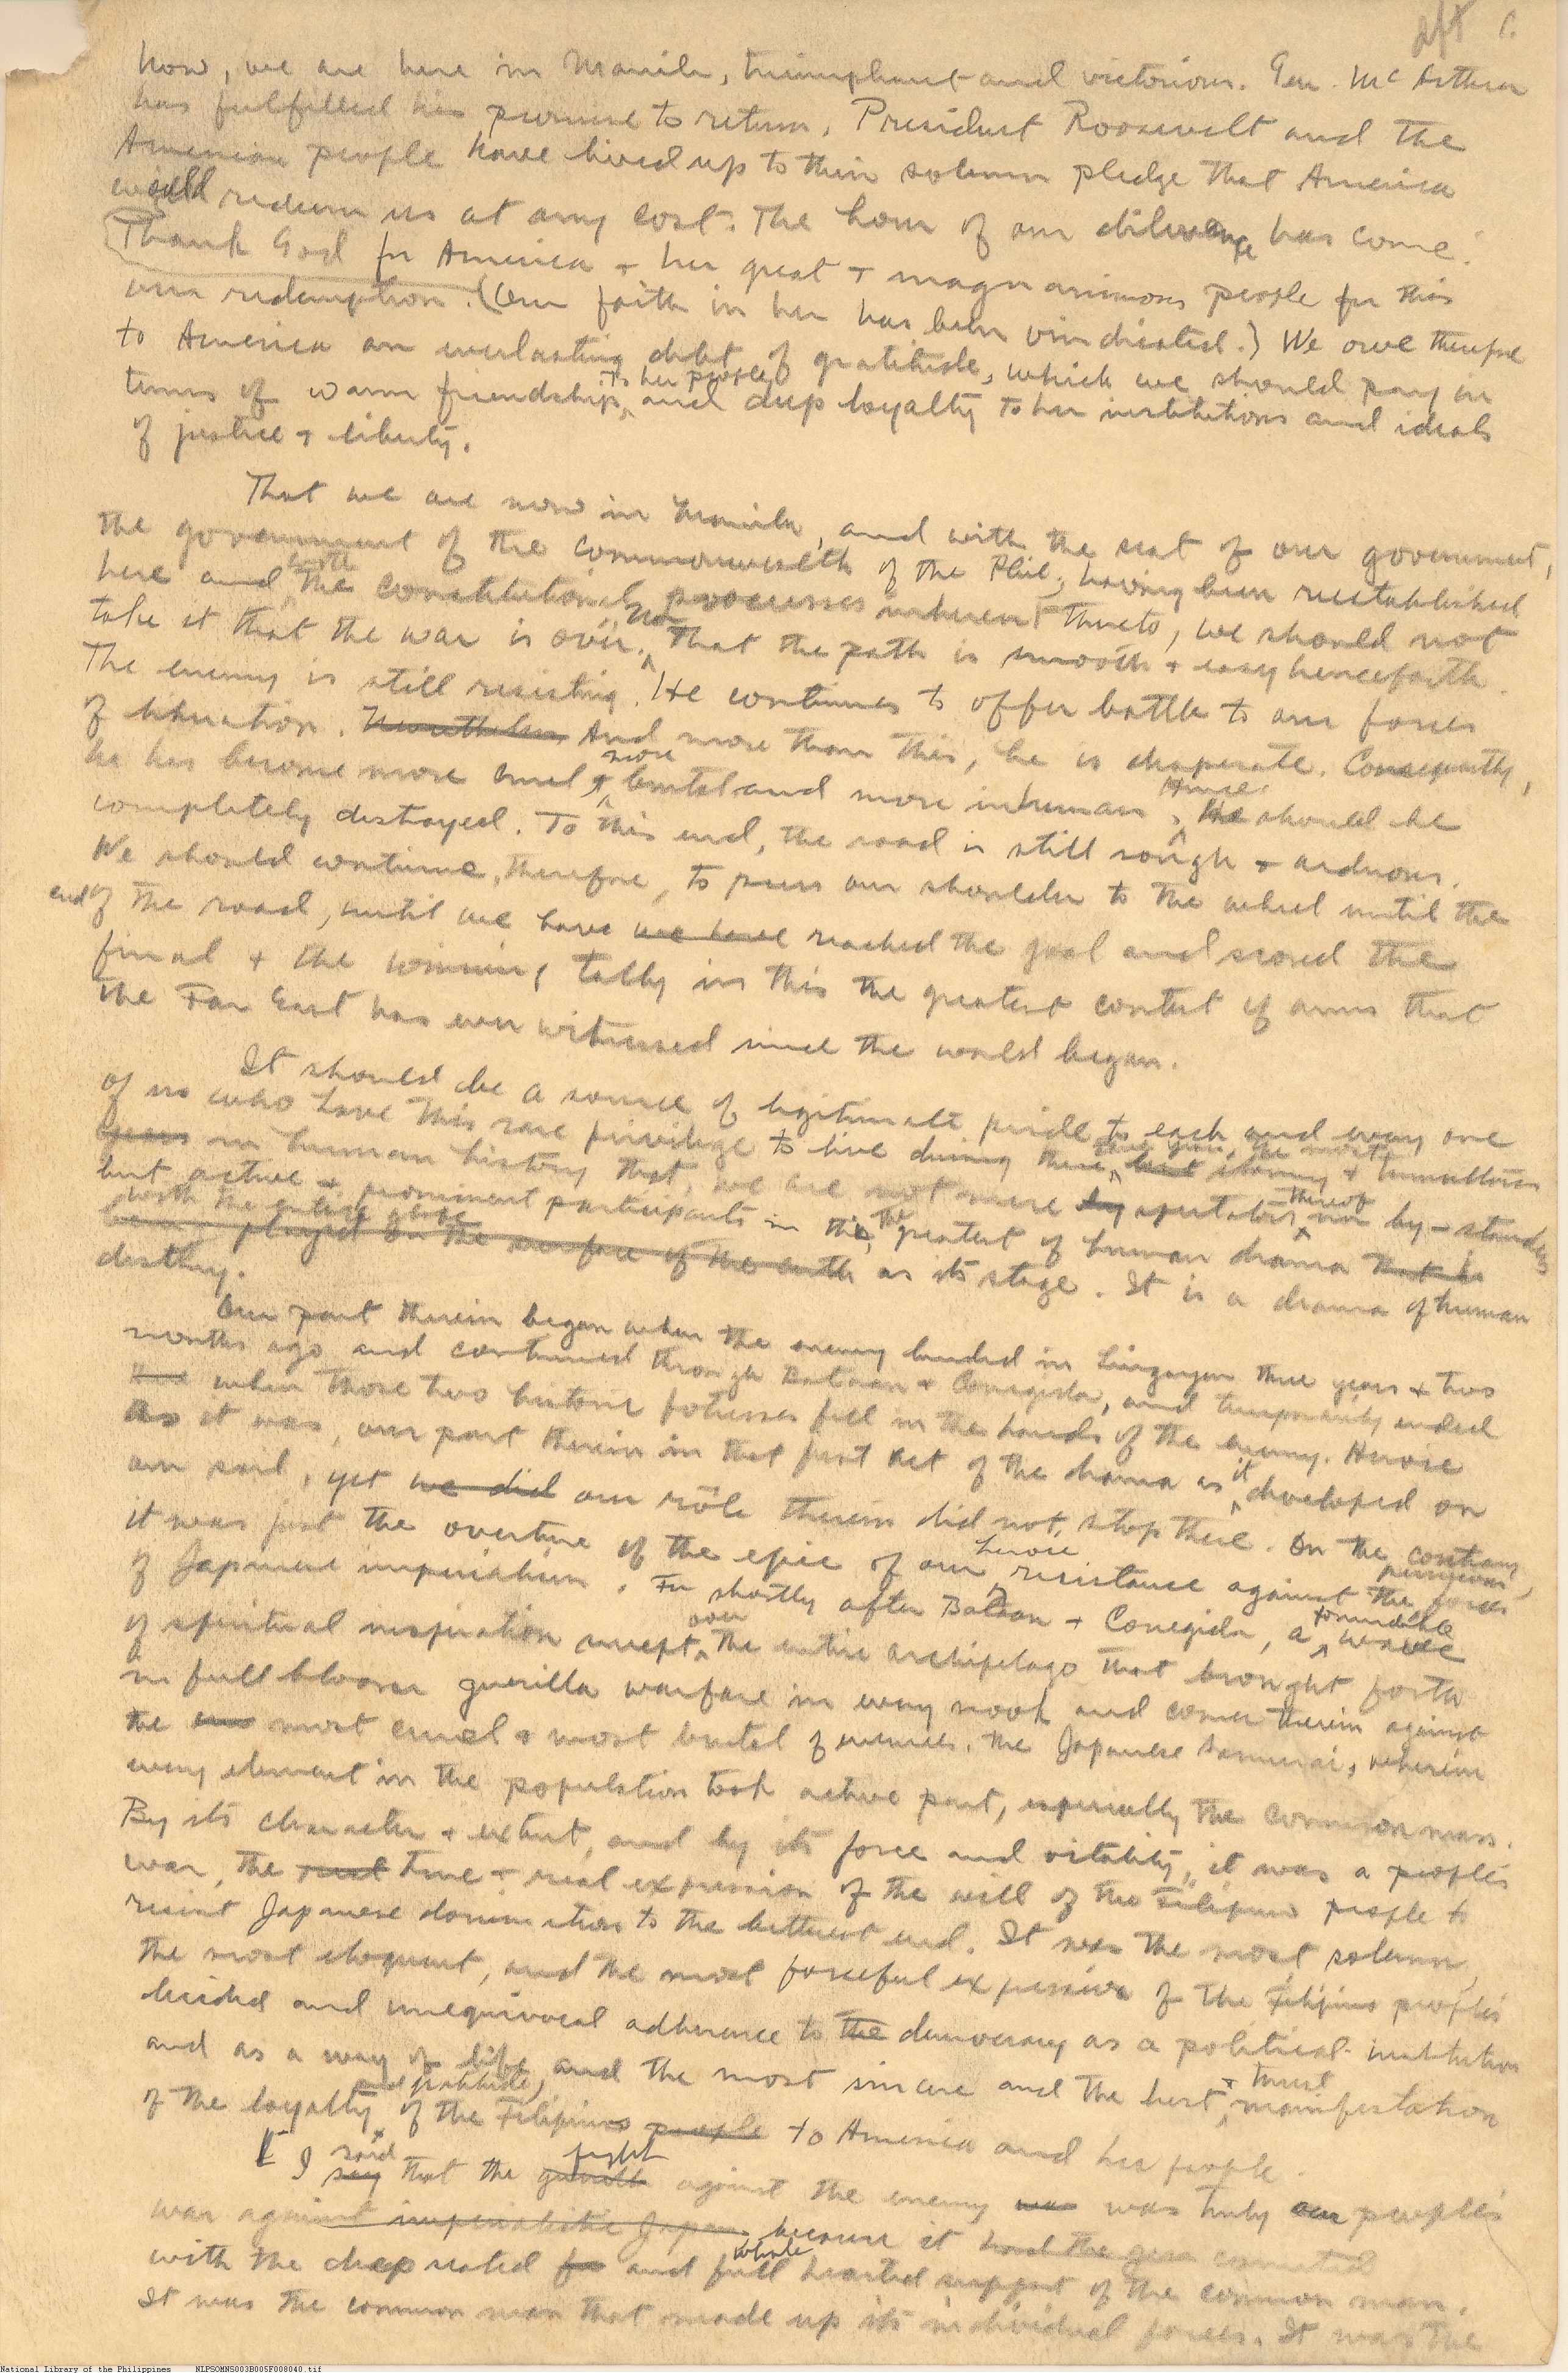 now, we are here in Manila, triumphant and victorious. Gen. McArthur
has fulfilled his promise to return. President Roosevelt and the
American people have lived up to their solemn pledge that America
would redeem us at any cost. The hour of our deliverance has come.
Thank God for America + her great + magnanimous people for this
our redemption. (Our faith in her has been vindicated.) We owe therefore
to America an everlasting debt of gratitude, which we should pay in
terms of warm friendship to her people, and deep loyalty to her institutions and ideals
of justice + liberty.
That we are now in Manila, and with the seat of our government,
the government of the Commonwealth of the Phil., having been reestablished
here and with the constitutional processes inherent thereto, we should not
take it that the war is over, nor that the path is smooth + easy henceforth.
The enemy is still resisting. He continues to offer battle to our forces
of liberation. And more than this, he is desperate. Consequently,
he has become more cruel + more brutal and more inhuman. Hence, he should be
completely destroyed. To this end, the road is still rough + arduous.
We should continue, therefore, to press our shoulder to the wheel until the
end of the road, until we have we have reached the goal and scored the
final + the winning tally in this the greatest contest of arms that
the Far East has ever witnessed since the world began.
It should be a source of legitimate pride to each and every one
of us who have this rare privilege to live during these years, the most stormy + tumultous
years in human history that, we are not mere by spectators thereof nor by-standers
but active + prominent participants in this, the greatest of human drama that is
with the entire globe
being played on the surface of the earth as its stage. It is a drama of human
destiny.
Our part therein began when the enemy landed in Lingayen three years + two
months ago and continued through Bataan + Corregidor, and temporarily ended
when those two historic fortresses fell in the hands of the enemy. Heroic
as it was, our part therein in that first act of the drama as it developed on
our soil, yet we did our rôle therein did not stop there. On the contrary,
it was just the overture of the epic of our heroic resistance against the forces
of Japanese imperialism. For shortly after Bataan + Corregidor, a formidable wave
of spiritual inspiration swept over the entire archipelago that brought forth
in full bloom guerilla warfare in every nook and corner therein against
the most cruel + most brutal of enemies, the Japanese Samurai, wherein
every element in the population took active part, especially the common man.
By its character + extent, and by its force and vitality, it was a people's
war, the real true + real expression of the will of the Filipino people to
resist Japanese domination to the bitterest end. It was the most solemn,
the most eloquent, and the most forceful expression of the Filipino people's
decided and unequivocal adherence to the democracy as a political institution
and as a way of life, and the most sincere and the best + truest manifestation
of the loyalty and gratitude, of the Filipinos people to America and her people.
I say said that the fight against the enemy was was truly our people's
war against imperialistic Japan, because it
with the deep rooted and full whole hearted support of the common man.
It was the common man that made up its individual forces. It was the
National Library of the Philippines NLPSOMNS003B005F008040.tif